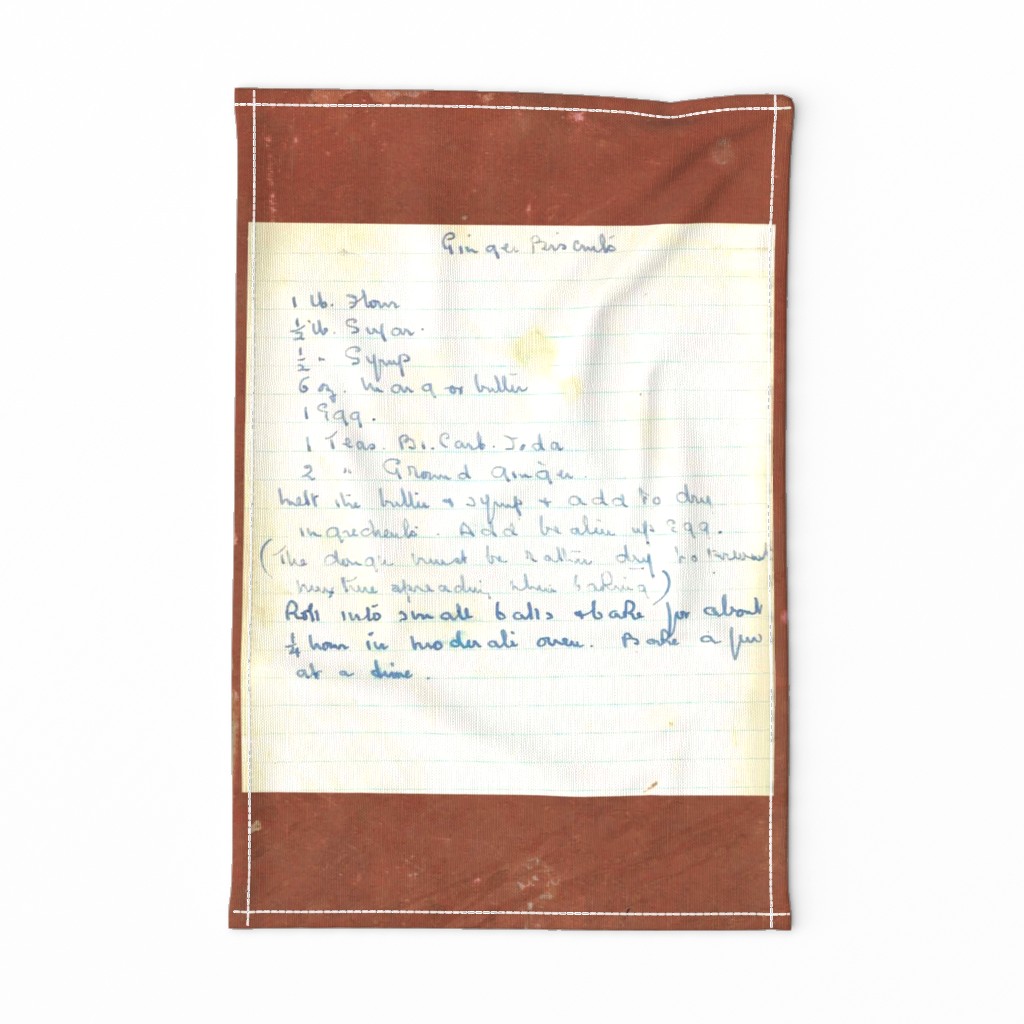 Ginger Biscuits
1 lb. Flour
½ lb. Sugar.
½ " Syrup
6 oz. Marg or butter
1 Egg.
1 Teas. Bi. Carb. Soda
2 " Ground Ginger.
Melt the butter & syrup & add to dry
ingredients. Add beaten up Egg.
(The dough must be rather dry to prevent
mixture spreading when baking)
Roll into small balls & bake for about
¼ hour in moderate oven. Bake a few
at a time.